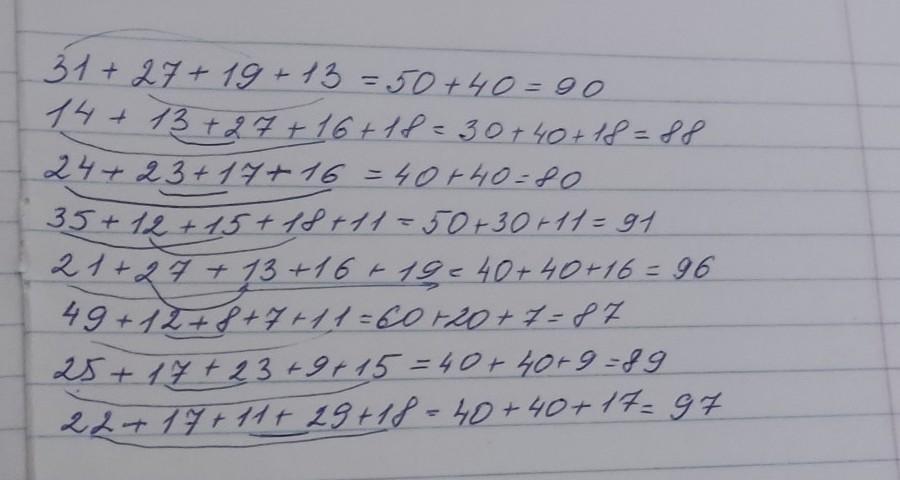 31 + 27 + 19 + 13 = 50 + 40 = 90
14 + 13 + 27 + 16 + 18 = 30 + 40 + 18 = 88
24 + 23 + 17 + 16 = 40 + 40 = 80
35 + 12 + 15 + 18 + 11 = 50 + 30 + 11 = 91
21 + 27 + 13 + 16 + 19 = 40 + 40 + 16 = 96
49 + 12 + 8 + 7 + 11 = 60 + 20 + 7 = 87
25 + 17 + 23 + 9 + 15 = 40 + 40 + 9 = 89
22 + 17 + 11 + 29 + 18 = 40 + 40 + 17 = 97